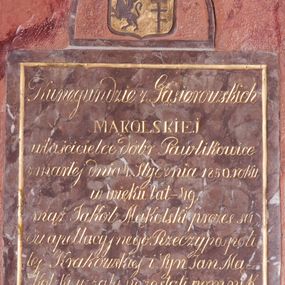 Kunegundzie z Gąsiorowskich
MAKOLSKIEJ
właścicielce dóbr Pawlikowice
zmarłej dnia 4 Stycznia 1830 roku
w wieku lat 49
mąż Jakób Makolski prezes są
du apellacyjnego Rzeczypospoli
tej Krakowskiej i syn Jan Ma
żalu pozostali pomnik